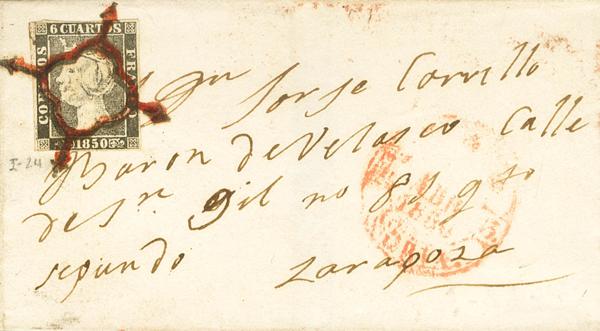 6 CUARTOS
CORREOS
FRANCO
1850
I-24
Sn Jorge Corvillo
Baron de Velasco Calle
de Sn Gil no 81 qto
segundo Zaragoza